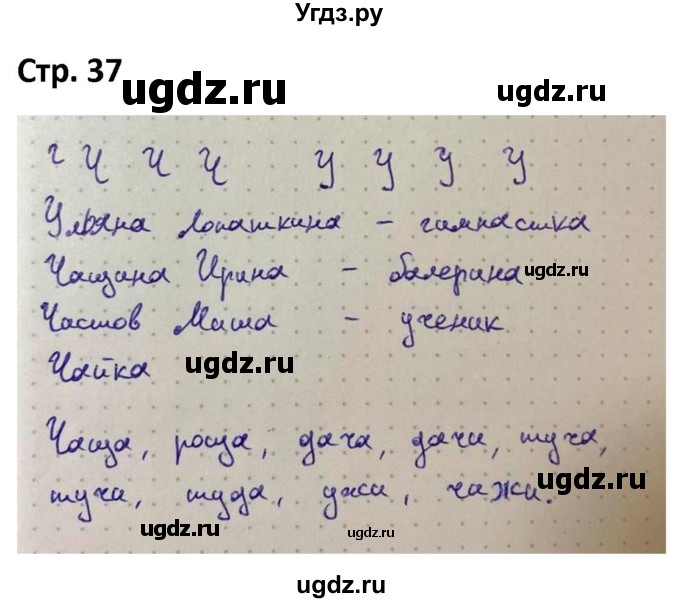 Угдз.ру
Стр. 37
ugdz.ru
ugdz.ru
г Ч Ч Ч У У У У
Ульяна Лопаткина – гимнастка
Чащина Ирина – балерина
ugdz.ru
Частов Миша – ученик
Чайка
ugdz.ru
Чаща, роща, дача, дачи, туча,
ugdz.ru
туча, туда, ужи, чажи.
ugdz.ru
ugdz.ru
ugdz.ru